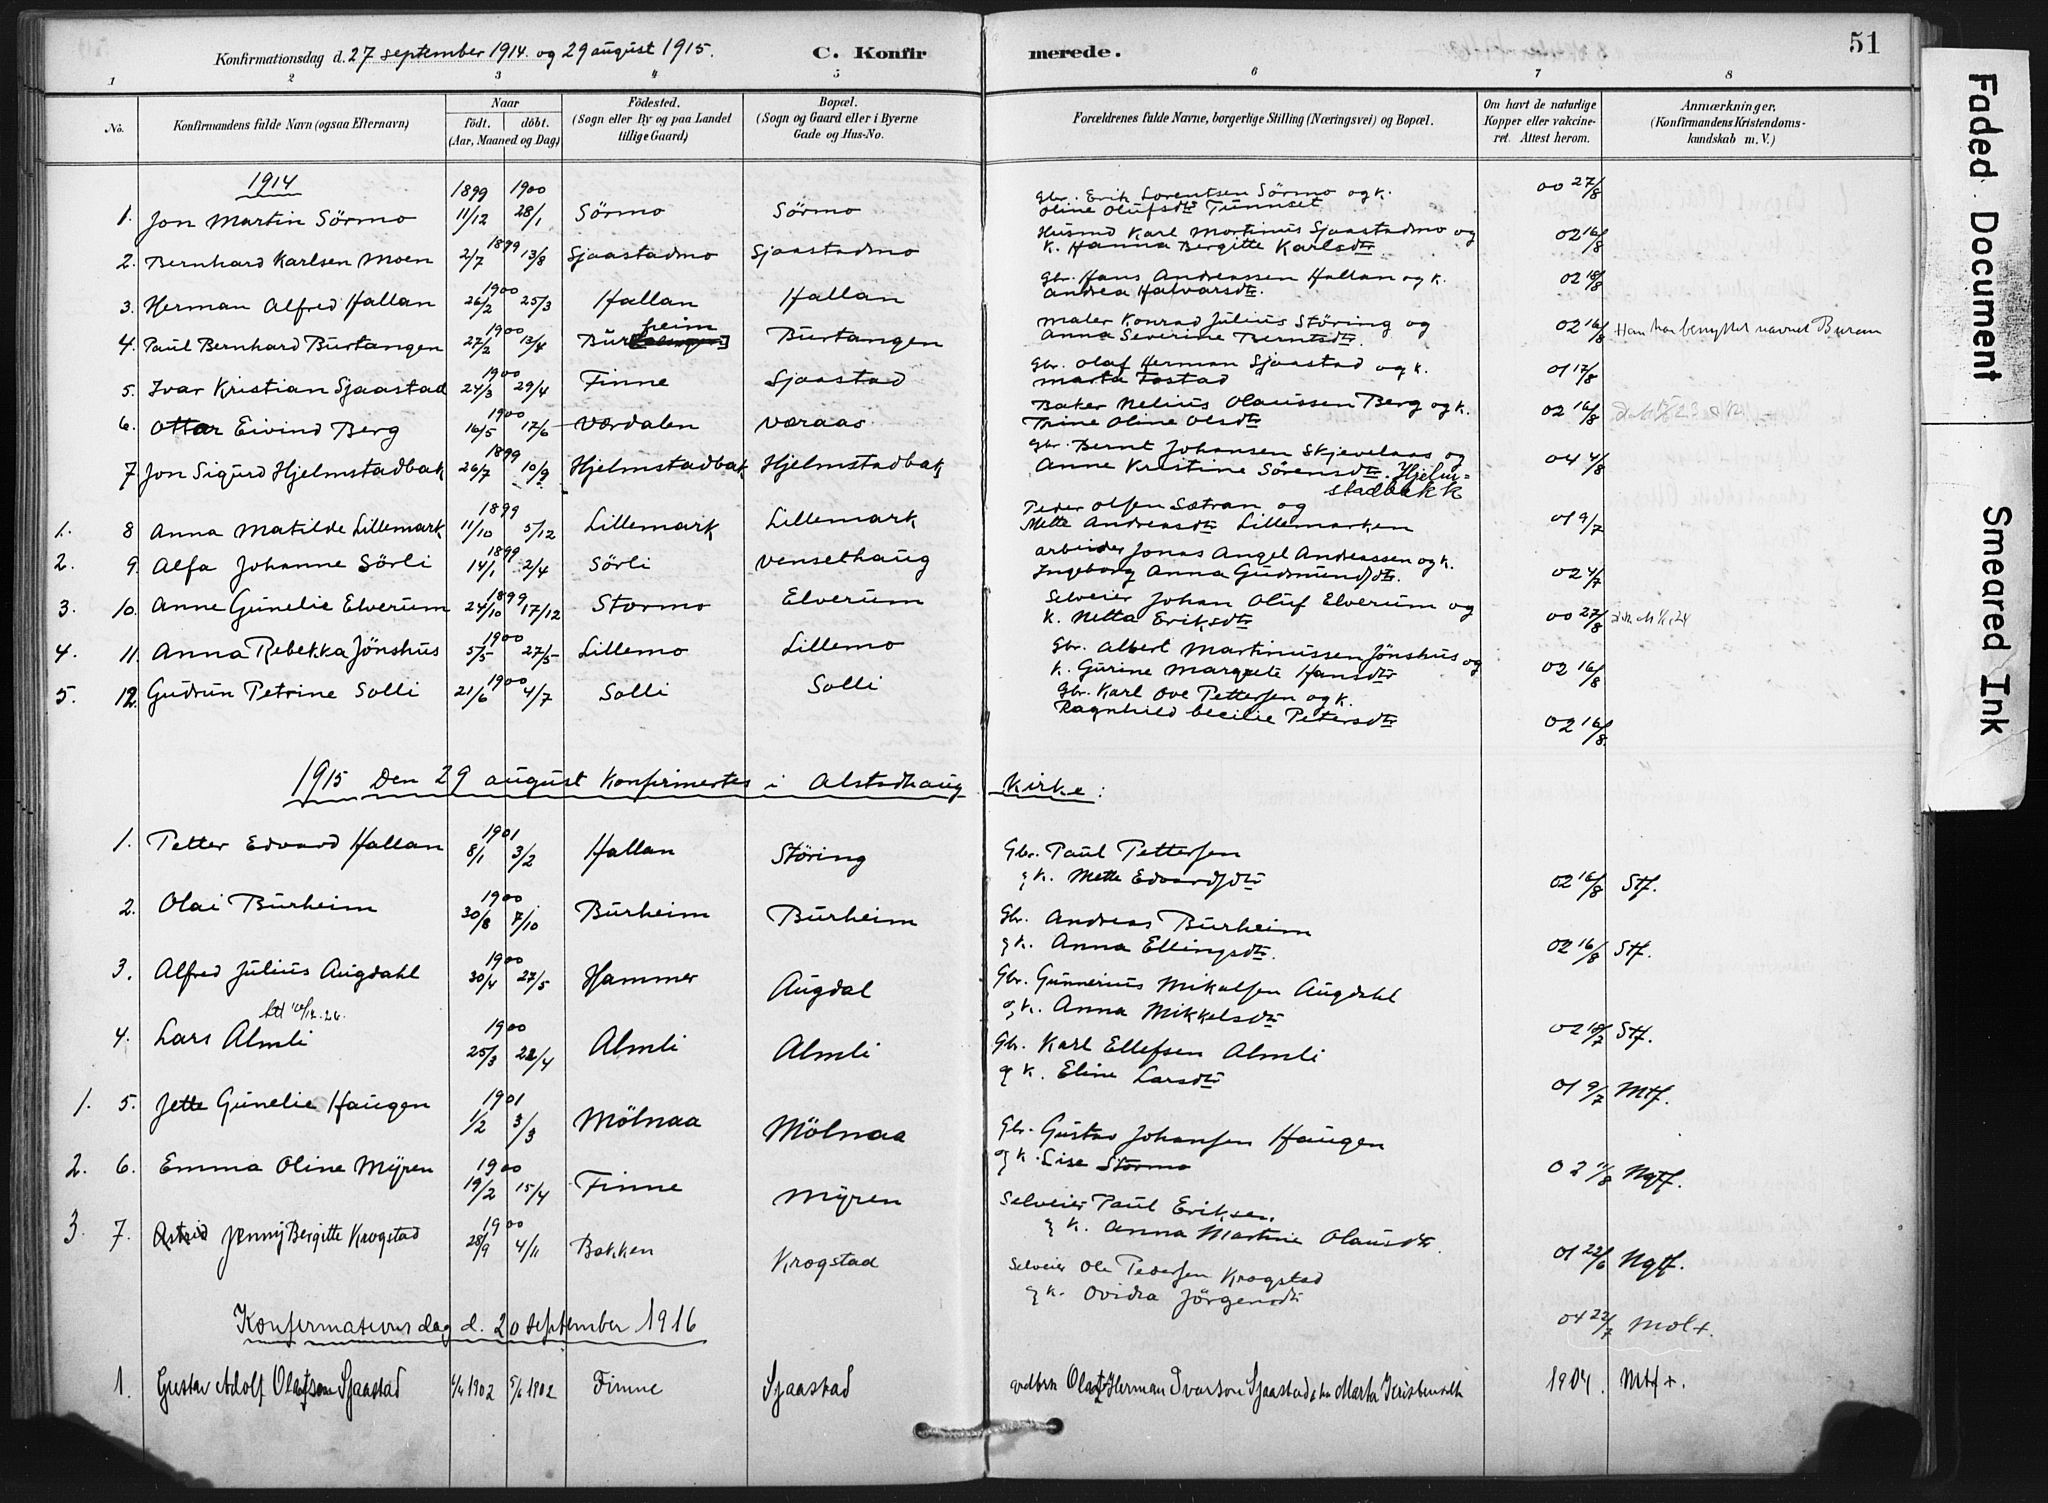 Konfirmationsdag d. 27 september 1914. og 29 august 1915. C. Konfirmerede. 51
1 2 3 4 5 6 7 8
No. Konfirmandens fulde Navn (ogsaa Efternavn) Naar födt. döbt. (Aar, Maaned og Dag) Födested. (Sogn eller By og paa Landet tillige Gaard) Bopæl. (Sogn og Gaard eller i Byerne Gade og Hus-No. Forældrenes fulde Navne, borgerlige Stilling (Næringsvei) og Bopæl. Om havt de naturlige Kopper eller vakcineret. Attest herom. Anmærkninger, (Konfirmandens Kristendomskundskab m. V.)
1914
1. Jon Martin Sörmo 1899 11/12 1900 28/1 Sörmo Sörmo Gbr. Erik Lorentsen Sörmo og k. Oline Olufsdtr Tunnset 00 27/8
2. Bernhard Karlsen Moen 1899 2/7 13/8 Sjaastadmo Sjaastadmo Husmd Karl Martinus Sjaastadmo og k. Hanna Bergitte Karlsdtr 02 16/8
3. Herman Alfred Hallan 1900 26/2 25/3 Hallan Hallan Gbr. Hans Andreassen Hallan og k. Andrea Halvarsdtr. 02 18/8
4. Paul Bernhard Burtangen 1900 27/2 13/4 Burheim Burtangen Maler Konrad Julius Störing og Anna Severine Berntsdtr. 02 16/8 Han har benyttet navnet Buran
5. Ivar Kristian Sjaastad 1900 24/3 29/4 Finne Sjaastad Gbr. Olaf Herman Sjaastad og k. Marta Tostad 01 17/8
6. Ottar Eivind Berg 1900 16/5 17/6 Værdalen Væraas Baker Nelius Olaussen Berg og k. Trine Oline Olsdtr 02 16/8
7 Jon Sigurd Hjelmstadbak 1899 26/7 10/9 Hjelmstadbak Hjelmstadbak Gbr. Bernt Johansen Skjevelaas og Anne Kristine Sörensdtr. Hjelmstadbekk 04 4/8
1. 8 Anna Matilde Lillemark 1899 11/10 5/12 Lillemark Lillemark Peder Olsen Sætran og Mette Andreasdtr Lillemarken 01 9/7
2. 9. Alfa Johanne Sörli 1899 14/1 2/4 Sörli Vensethaug arbeider Jonas Angel Andreassen og k. Ingeborg Anna Gudmundsdtr. 02 4/7
3. 10. Anne Gunelie Elverum 1899 24/10 17/12 Stormo Elverum Selveier Johan Oluf Elverum og k. Netta Eriksdtr 00 27/8
4. 11. Anna Rebekka Jönshus 1900 5/5 27/5 Lillemo Lillemo Gbr. Albert Martinussen Jönshus og k. Gurine Margrete Hansdtr 02 16/8
5. 12. Gudrun Petrine Solli 1900 21/6 4/7 Solli Solli Gbr. Karl Ove Pettersen og k. Ragnhild Cecilie Petersdtr 02 16/8.
1915 Den 29 august konfirmertes i Alstadhaug kirke:
1. Petter Edvard Hallan 1901 8/1 3/2 Hallan Störing Gbr. Paul Pettersen og k. Mette Edvardsdtr 02 16/8 Stf.
2. Olai Burheim 1900 30/8 7/10 Burheim Burheim Gbr. Andreas Burheim og k. Anna Ellingsdtr. 02 16/8 Stf.
3. Alfred Julius Augdahl 1900 30/4 27/5 Hammer Augdal Gbr. Gunnerius Mikalsen Augdahl og k. Anna Mikkelsdtr 02 18/7 Stf.
4. Lars Almli 1900 25/3 22/4 Almli Almli Gbr. Karl Ellefsen Almli og k. Eline Larsdtr 01 9/7 Mtf.
1. 5. Jette Gunelie Haugen 1901 1/2 3/3 Mölnaa Mölnaa Gbr. Gustav Johansen Haugen og k. Lise Stormo 02 11/8 Ngtf.
2. 6. Emma Oline Myren 1900 19/2 15/4 Finne Myren Selveier Paul Eriksen og k. Anna Martine Olausdtr. 01 22/6 Ngtf.
3. 7. Astrid Jenny Bergitte Krogstad 1900 28/9 4/11 Bakken Krogstad Selveier Ole Pedersen Krogstad og k. Ovidia Jörgensdtr 04 22/7 Mol+.
Konfirmationsdag d. 20 september 1916
1. Gustav Adolf Olafson Sjaastad 1902 1902 Finne Sjaastad Olaf Herman Ivarson Sjaastad Marta Kristensdtr 1904. Mtf+.
Faded Document Smeared Ink